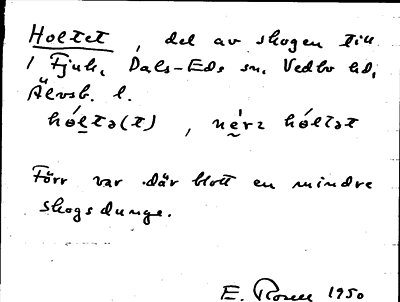 Holtet, del av skogen till
1 Fjuk, Dals-Eds sn, Vedbo hd,
Älvsb. l.
hól̠tə(t), né̠rz hóltət
Förr var där blott en mindre
skogsdunge.
E. Rosell 1950